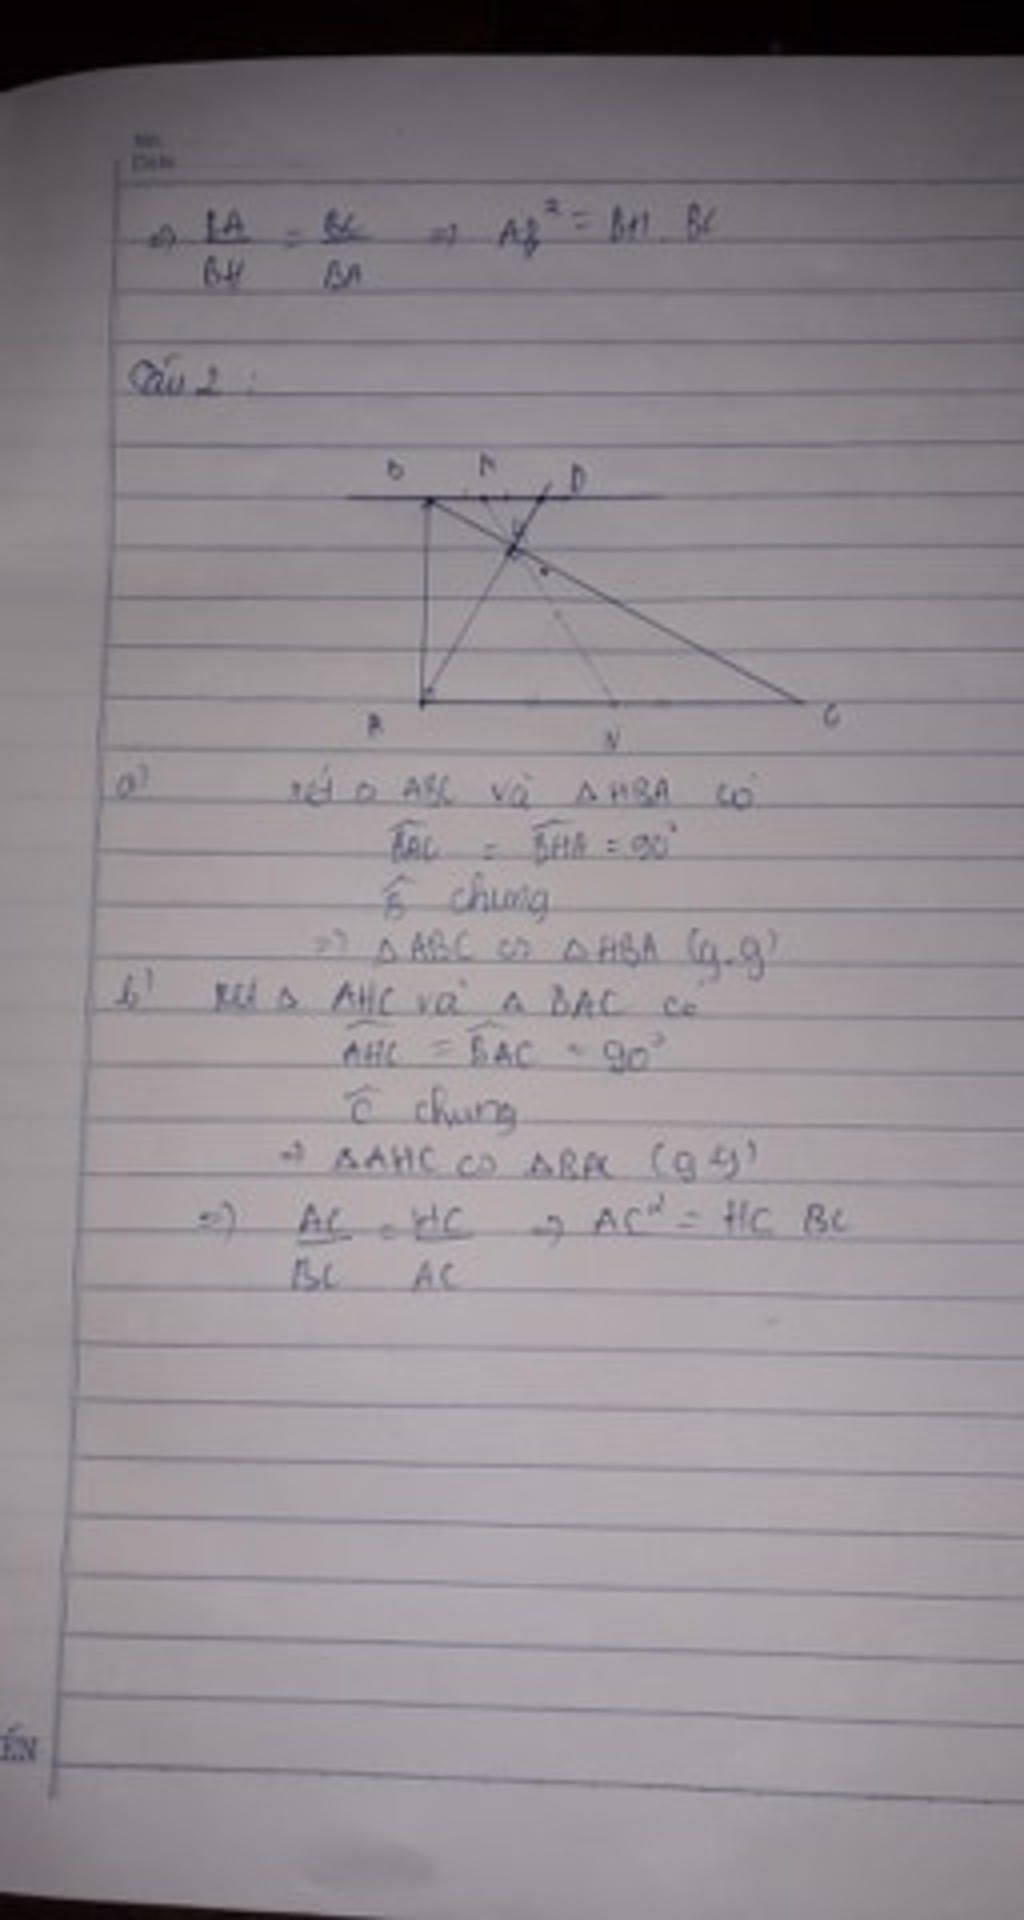 No.
Date
=> BA/BH = BC/BA => AB² = BH . BC
Câu 2 :
B M D
H
A N C
a) xét Δ ABC và Δ HBA có
BAC = BHA = 90°
B chung
=> Δ ABC ∽ Δ HBA (g.g)
b) xét Δ AHC và Δ BAC có
AHC = BAC = 90°
C chung
=> Δ AHC ∽ Δ BAC (g.g)
=> AC/BC = HC/AC => AC² = HC BC
ẾN